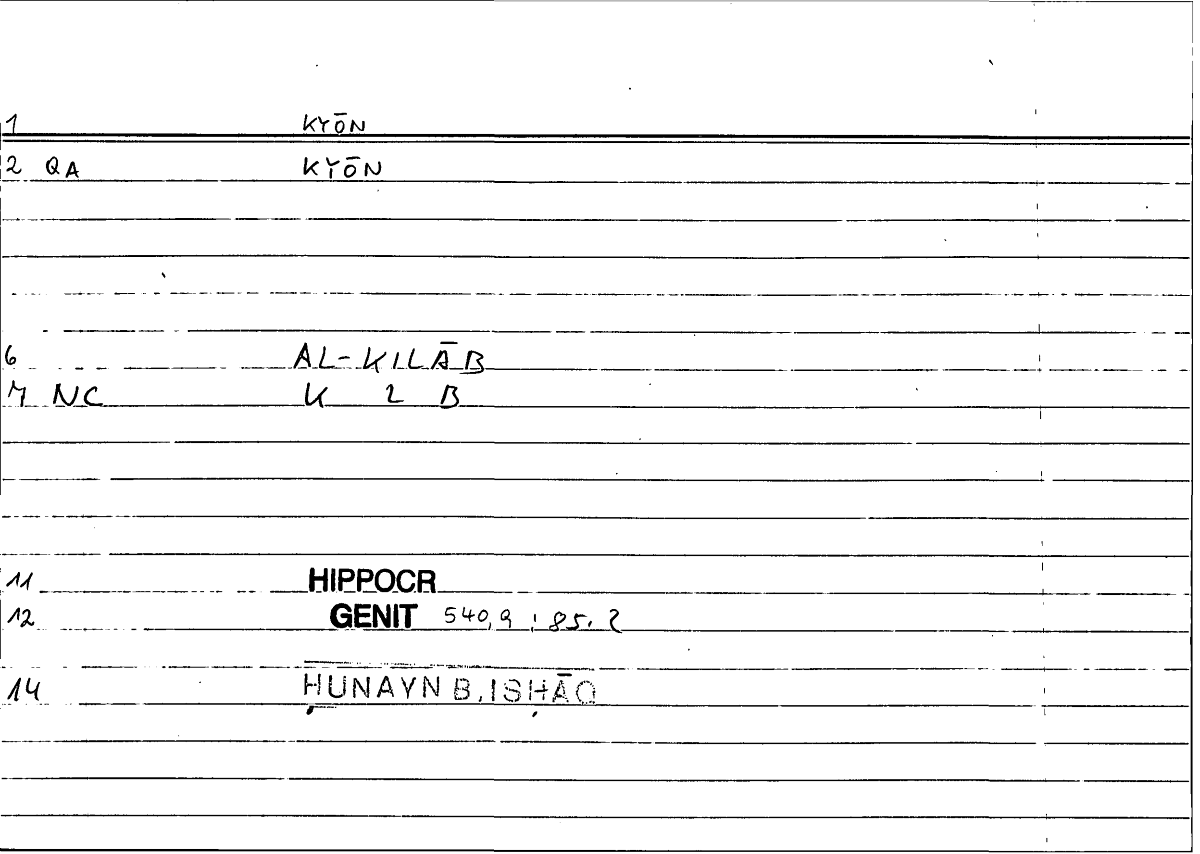 1 KYŌN
2 QA KYŌN
6 AL-KILĀB
7 NC K L B
11 HIPPOCR
12 GENIT 540,9 ; 85.2
14 ḤUNAYN B. ISḤĀQ